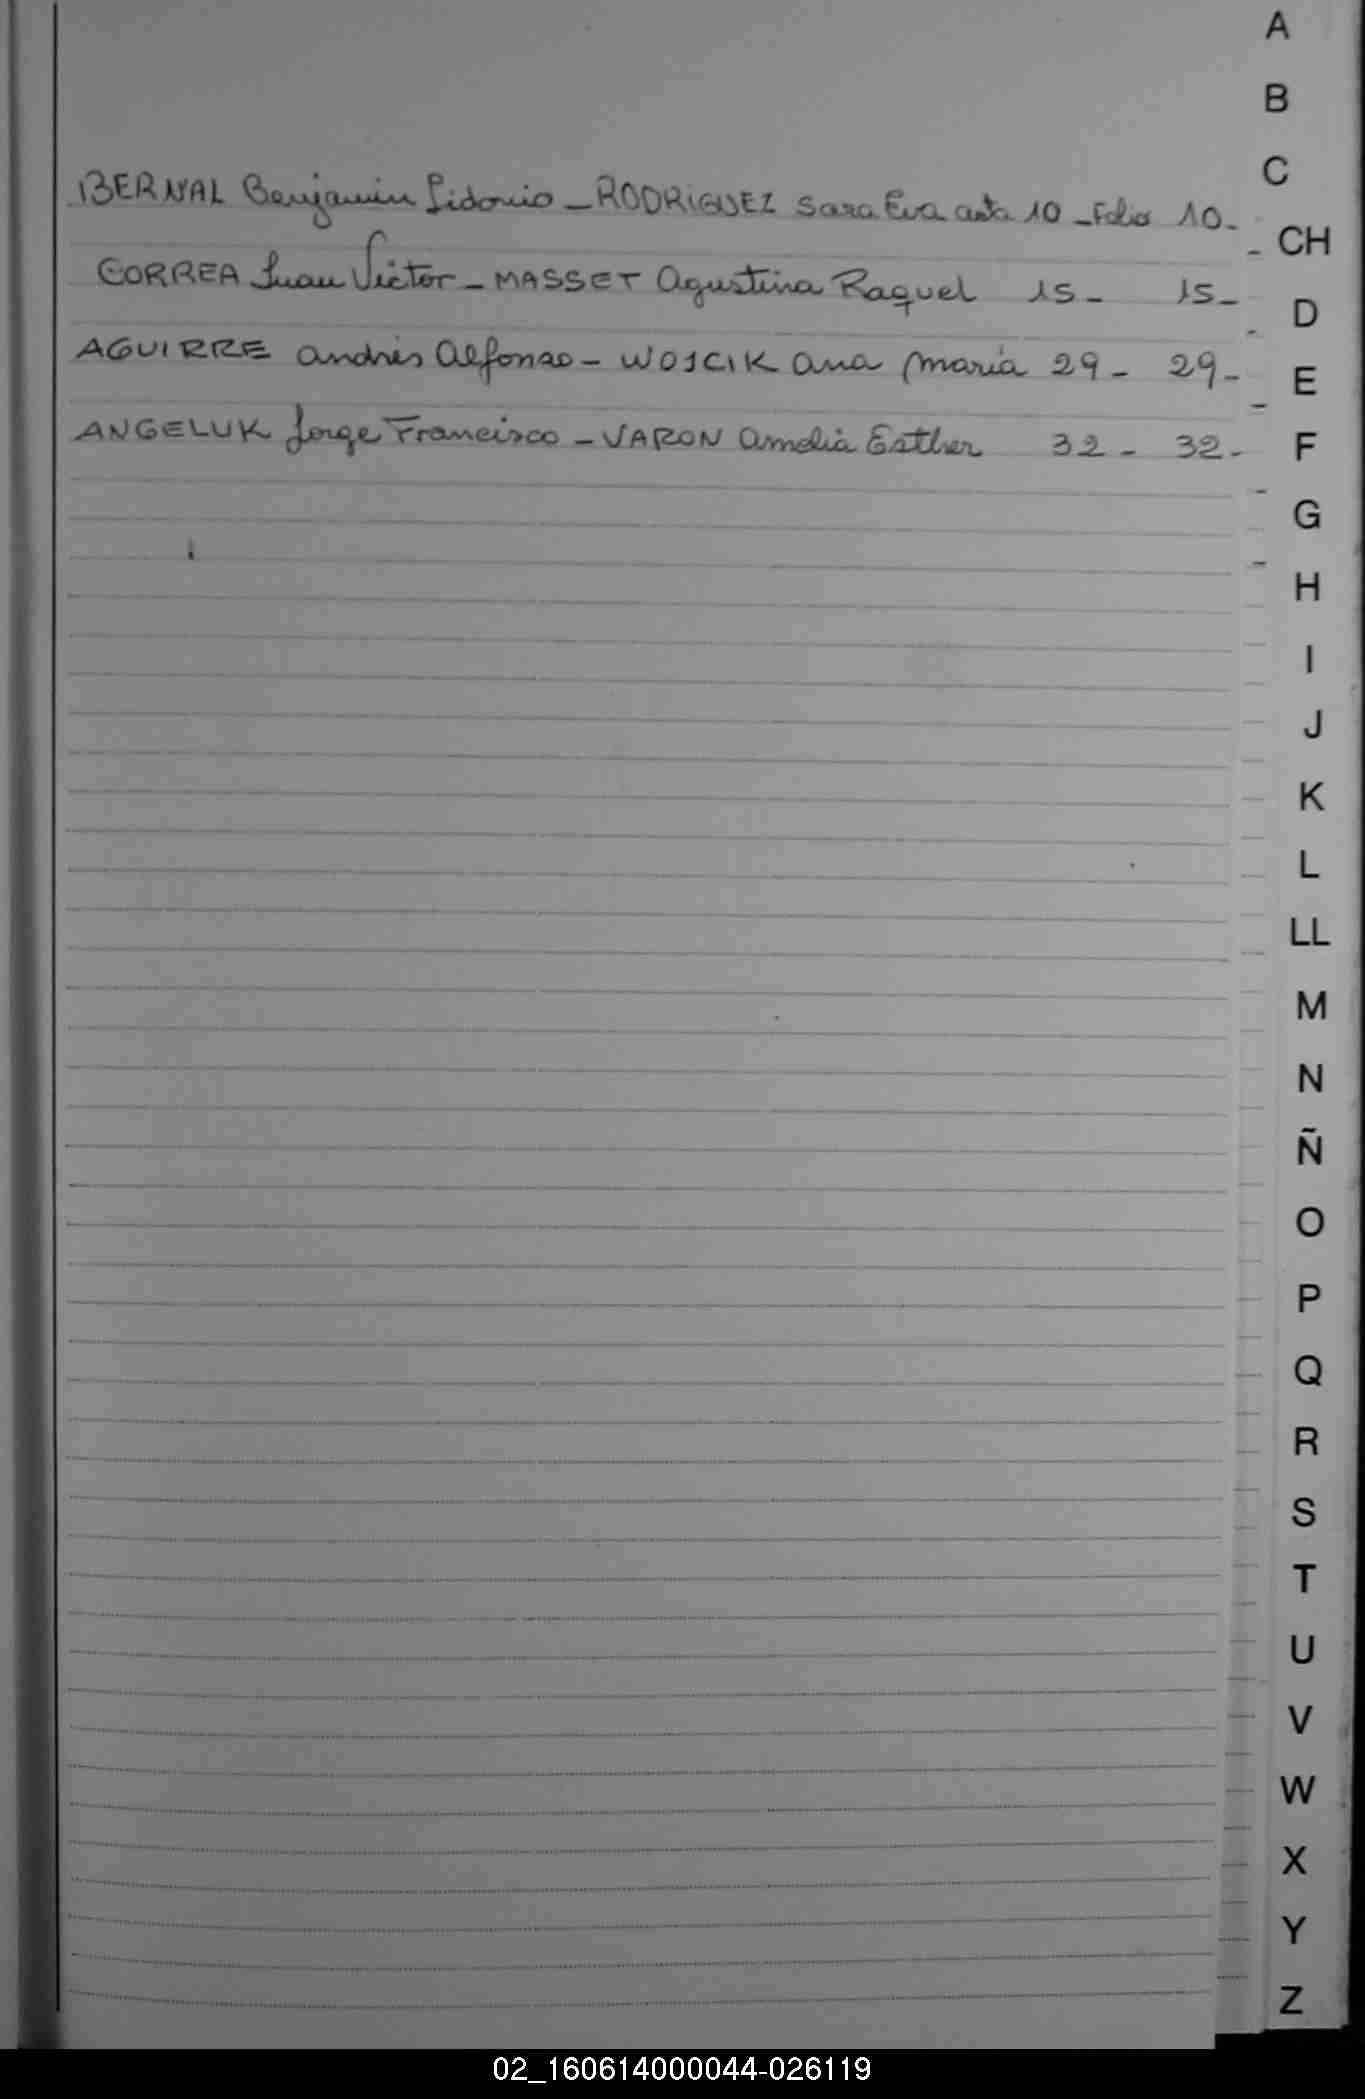 BERNAL Benjamin Sidonio - RODRIGUEZ Sara Eva acta 10 - Folio 10 -
CORREA Juan Victor - MASSET Agustina Raquel 15 - 15 -
AGUIRRE Andrés Alfonso - WOJCIK Ana María 29 - 29 -
ANGELUK Jorge Francisco - VARON Amelia Esther 32 - 32 -
A
B
C
CH
D
E
F
G
H
I
J
K
L
LL
M
N
Ñ
O
P
Q
R
S
T
U
V
W
X
Y
Z
02_160614000044-026119